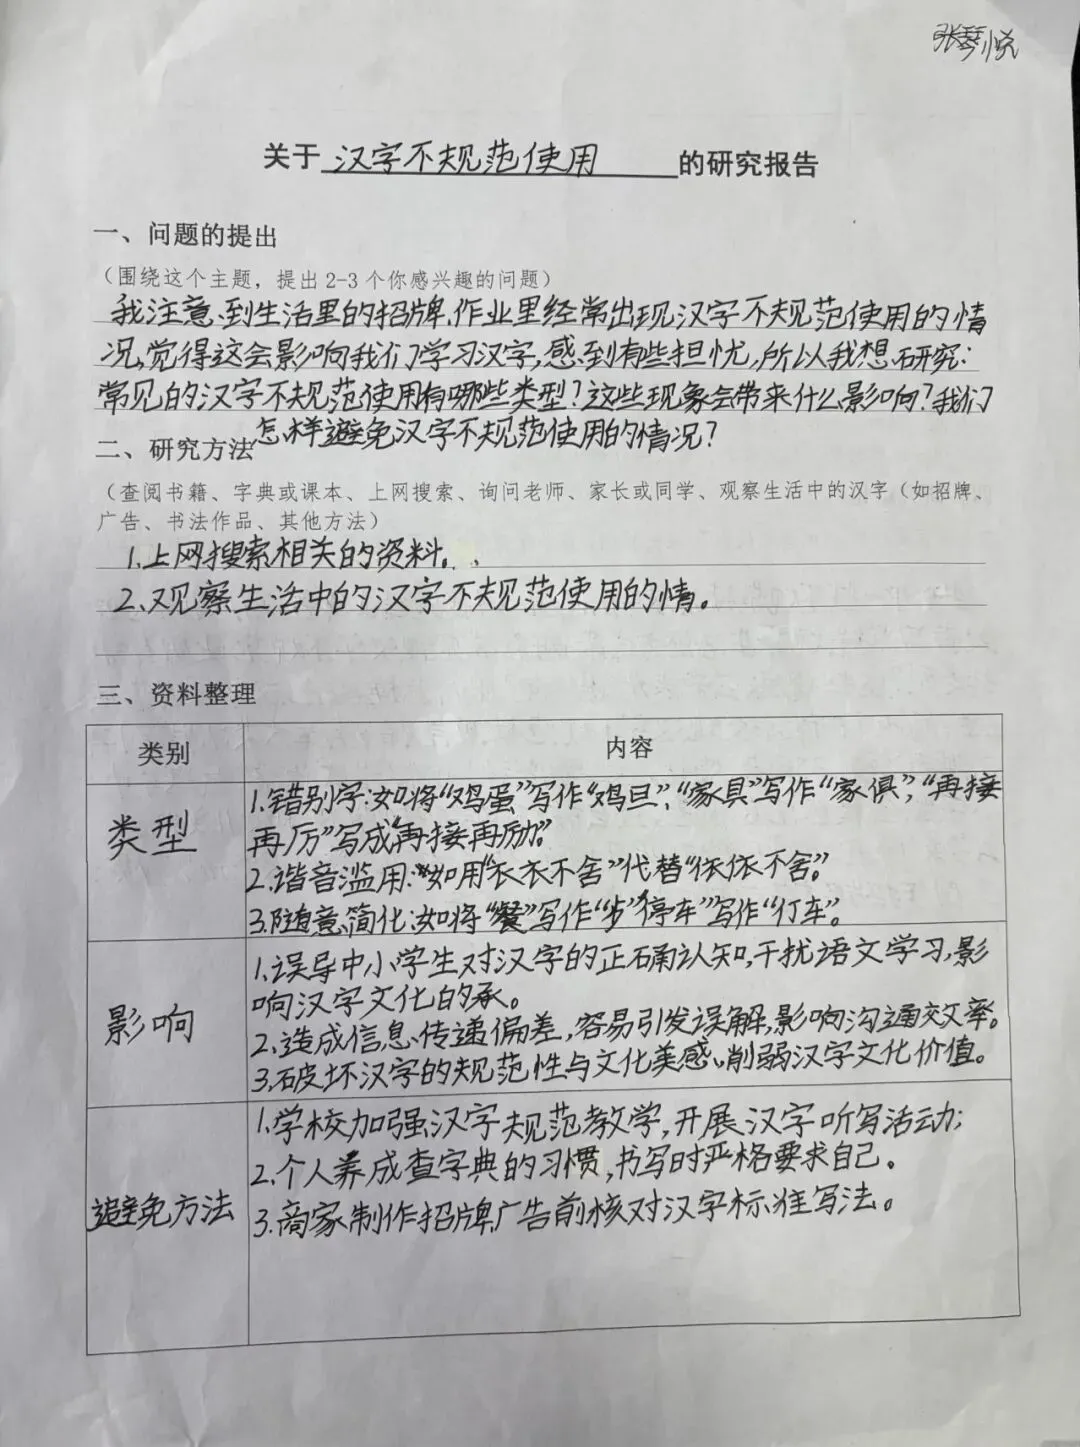 张琴悦
关于 汉字不规范使用 的研究报告
一、问题的提出
（围绕这个主题，提出 2-3 个你感兴趣的问题）
我注意到生活里的招牌、作业里经常出现汉字不规范使用的情
况，觉得这会影响我们学习汉字，感到有些担忧，所以我想研究：
常见的汉字不规范使用有哪些类型？这些现象会带来什么影响？我们
怎样避免汉字不规范使用的情况？
二、研究方法
（查阅书籍、字典或课本、上网搜索、询问老师、家长或同学、观察生活中的汉字（如招牌、
广告、书法作品、其他方法）
1.上网搜索相关的资料。
2.观察生活中的汉字不规范使用的情。
三、资料整理
类别 内容
类型
1.错别字：如将“鸡蛋”写作“鸡旦”，“家具”写作“家俱”，“再接
再厉”写成“再接再励”。
2.谐音滥用：如用“衣衣不舍”代替“依依不舍”。
3.随意简化：如将“餐”写作“歺”“停车”写作“仃车”。
影响
1.误导中小学生对汉字的正确认知，干扰语文学习，影
响汉字文化的承。
2.造成信息传递偏差，容易引发误解，影响沟通效率。
3.破坏汉字的规范性与文化美感、削弱汉字文化价值。
避免方法
1.学校加强汉字规范教学，开展汉字听写活动；
2.个人养成查字典的习惯，书写时严格要求自己。
3.商家制作招牌广告前核对汉字标准写法。